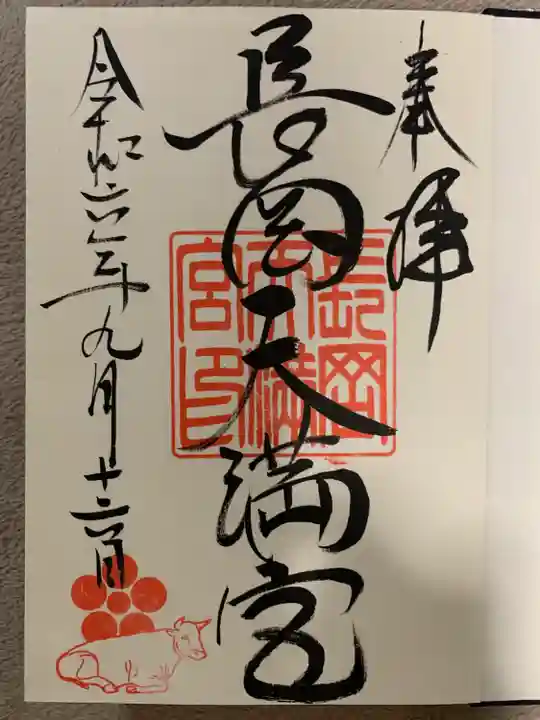 奉拝
長岡天満宮
長岡天満宮印
令和六年九月十六日